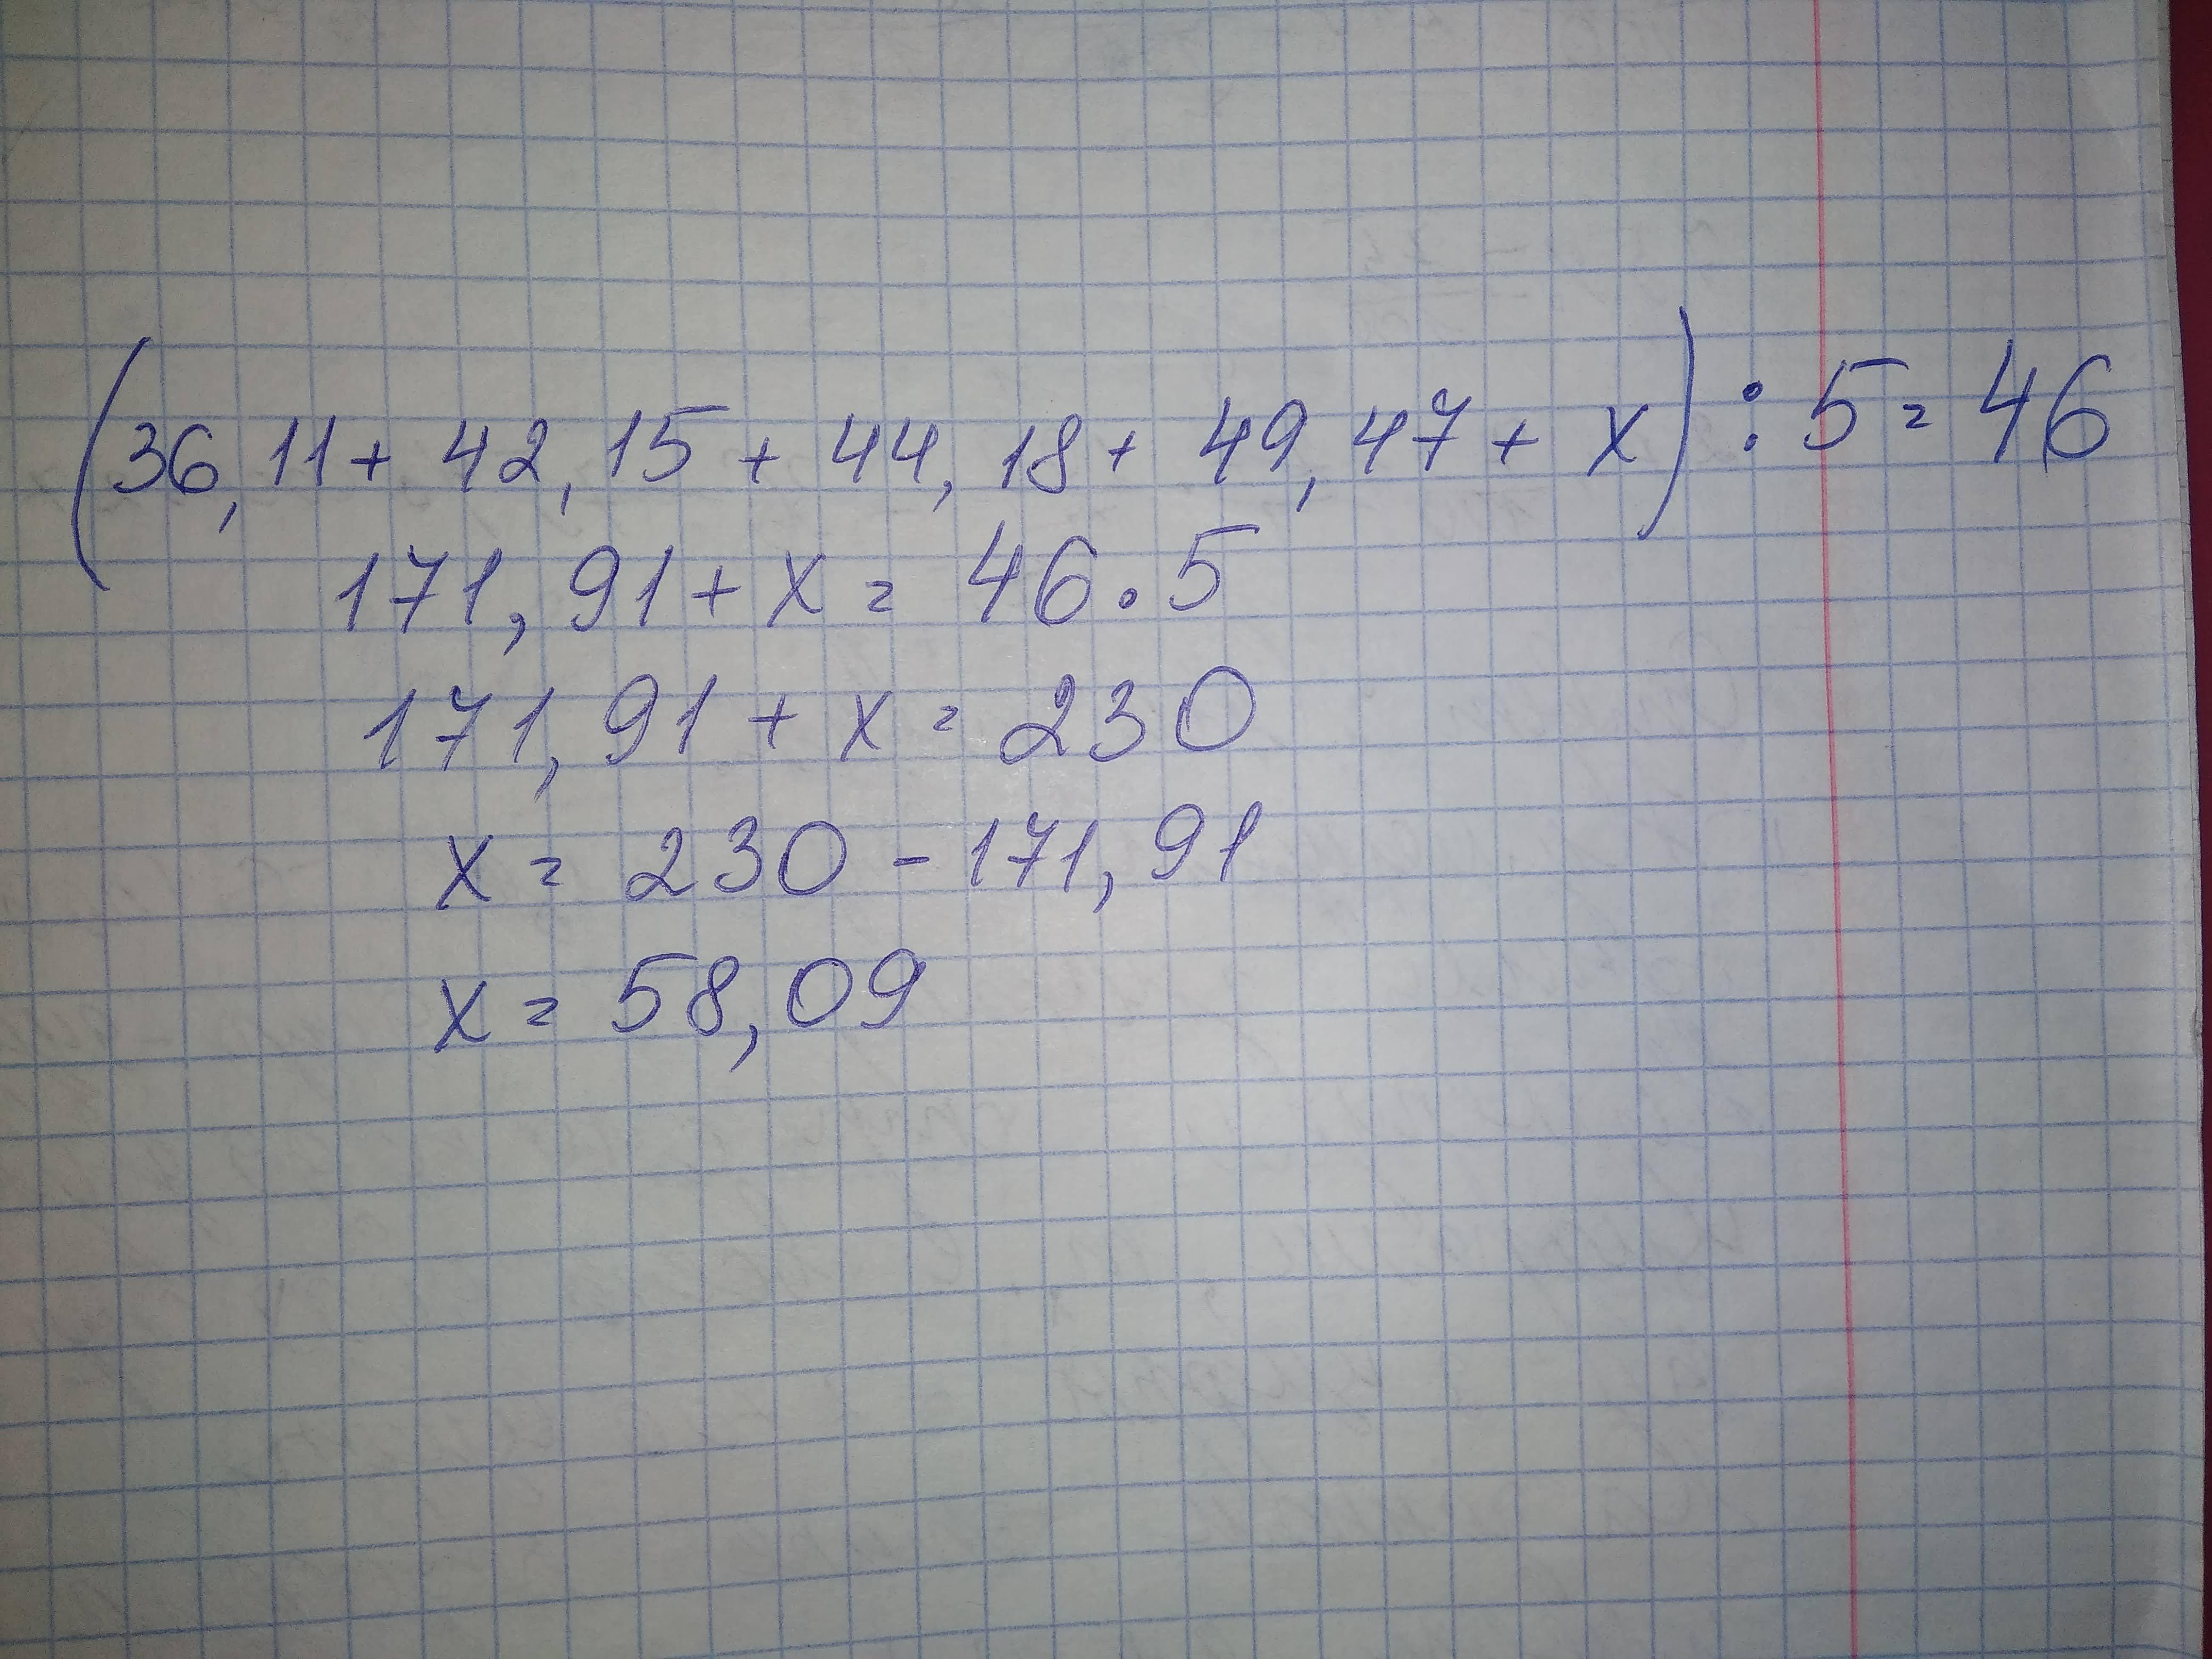 (36,11 + 42,15 + 44,18 + 49,47 + x) : 5 = 46
171,91 + x = 46 · 5
171,91 + x = 230
x = 230 - 171,91
x = 58,09